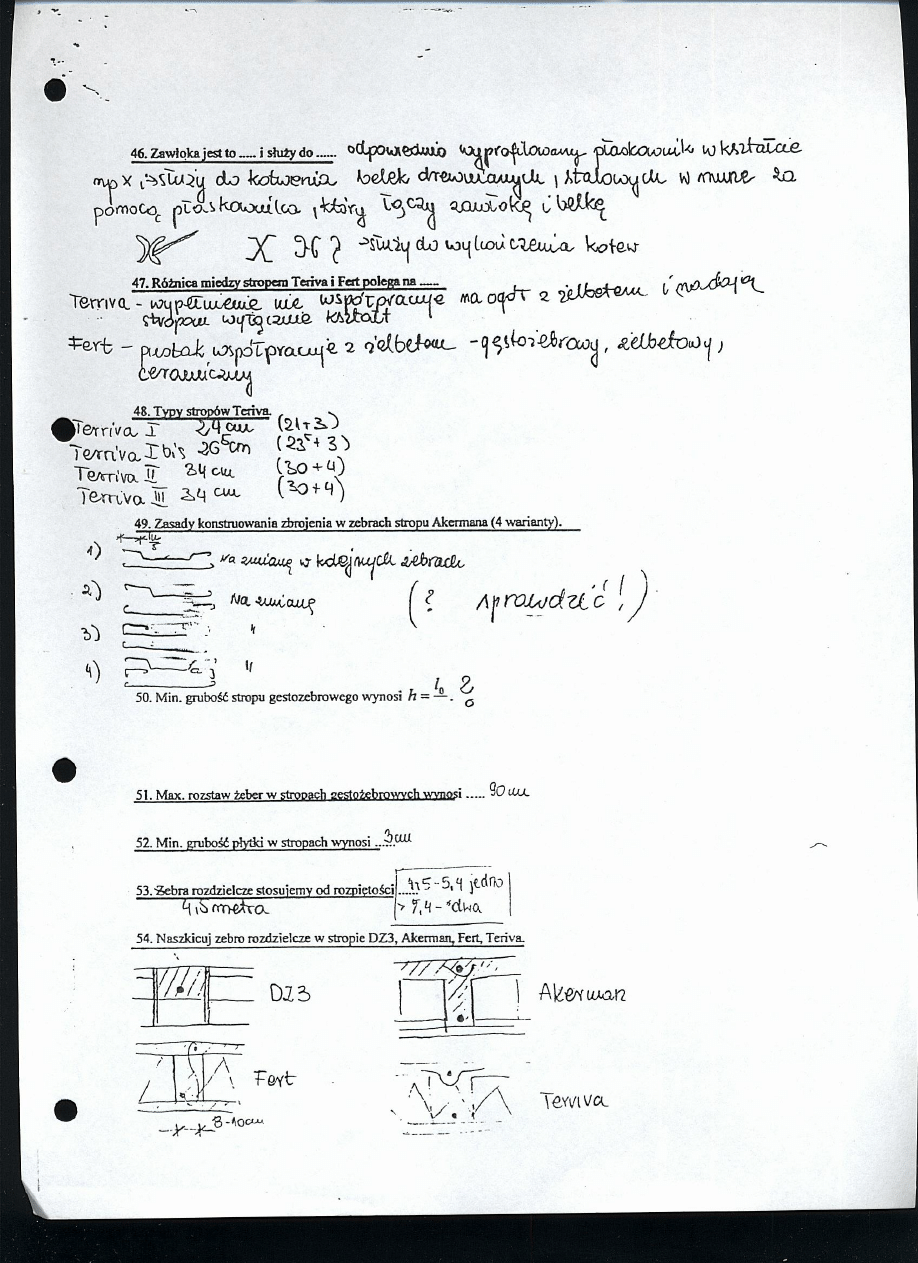 46. Zawłoka jest to ..... i służy do ...... odpowiednio wyprofilowany płaskownik w kształcie
np X, →służy do kotwienia belek drewnianych, stalowych w murze za
pomocą płaskownika, który łączy zawłokę i belkę
→służy do wykończenia kotew
47. Różnica miedzy stropem Teriva i Fert polega na .....
Terriva - wypełnienie nie współpracuje na ogół z żelbetem i nadają
stropom wyłącznie kształt
Fert - pustak współpracuje z żelbetem - gęstożebrowy, żelbetowy,
ceramiczny
48. Typy stropów Teriva.
Terriva I 24 cm (21+3)
Terriva I bis 26⁵cm (23⁵+3)
Terriva II 34 cm (30+4)
Terriva III 34 cm (30+4)
49. Zasady konstruowania zbrojenia w zebrach stropu Akermana (4 warianty).
1) Na zmianę w kolejnych żebrach
2) Na zmianę (? sprawdzić!)
3) "
4) "
50. Min. grubość stropu gestozebrowego wynosi h = l₀ . ?
51. Max. rozstaw żeber w stropach gestożebrowych wynosi ..... 90 cm
52. Min. grubość płytki w stropach wynosi ...... 3cm
53. Żebra rozdzielcze stosujemy od rozpiętości ...... 4,5-5,4 jedno
4,5 metra > 5,4 - dwa
54. Naszkicuj zebro rozdzielcze w stropie DZ3, Akerman, Fert, Teriva.
DZ3 Akerman
Fert Terriva
8-10cm